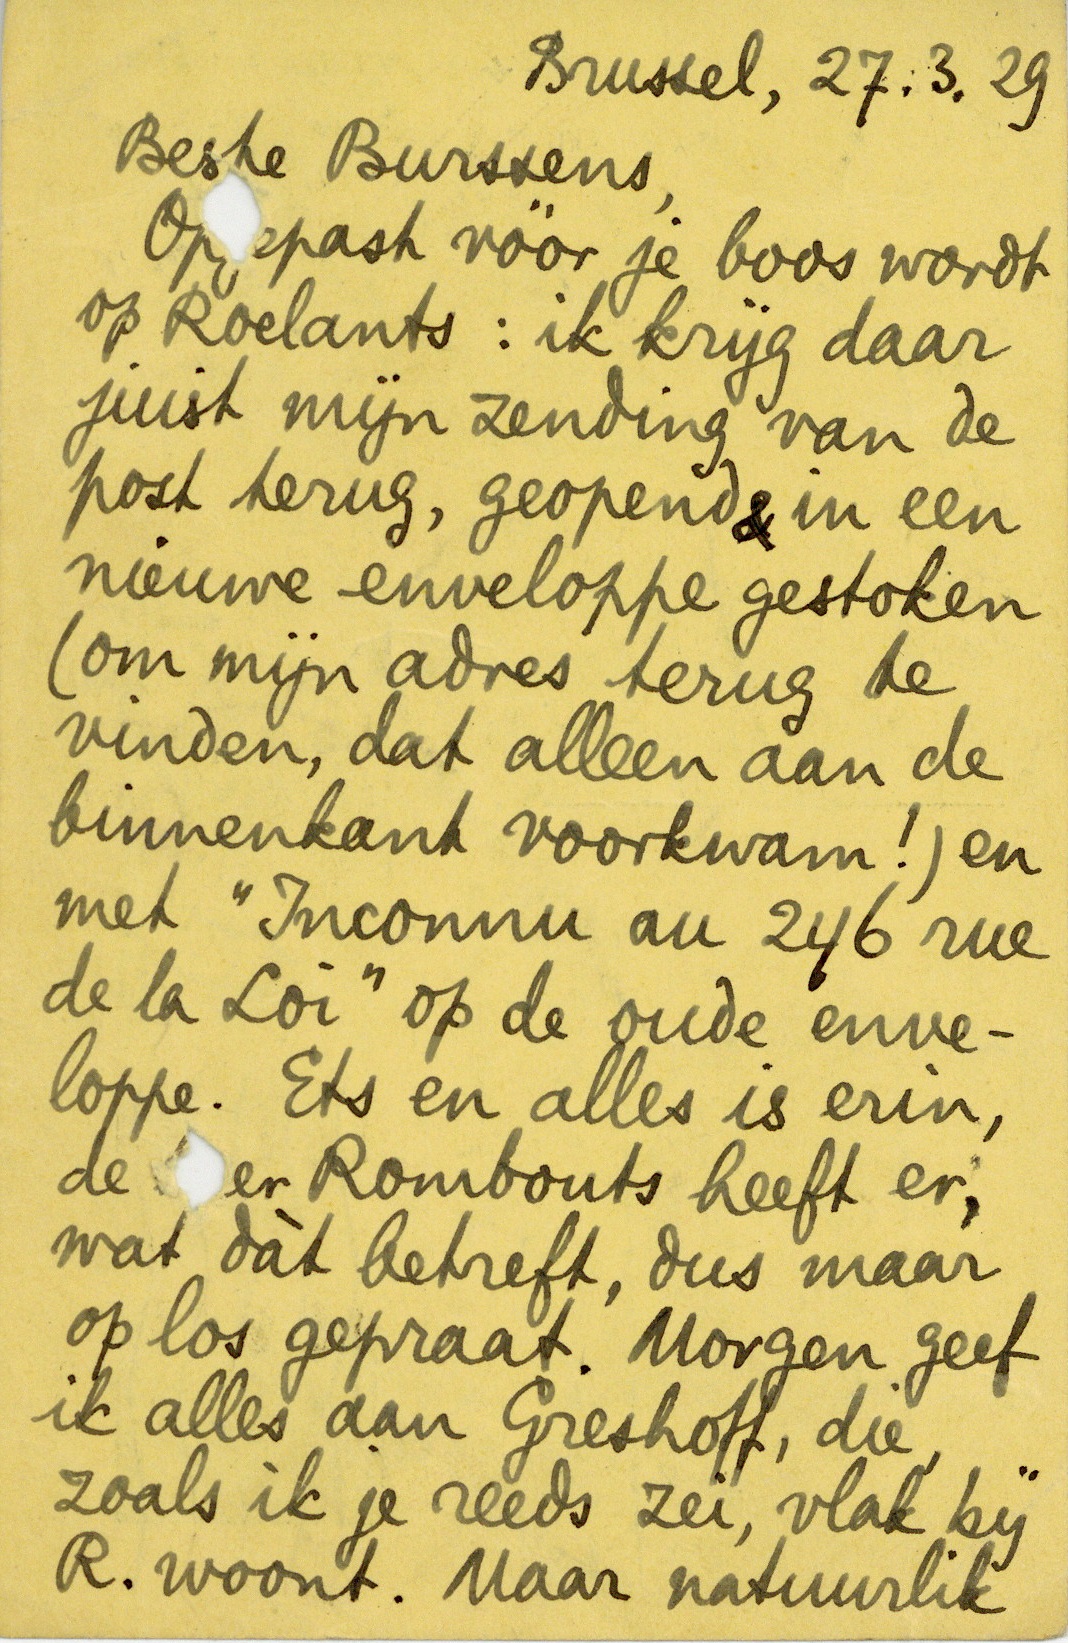 Brussel, 27.3.29
Beste Burssens,
Opgepast vóór je boos wordt
op Roelants : ik krijg daar
juist mijn zending van de
post terug, geopend & in een
nieuwe enveloppe gestoken
(om mijn adres terug te
vinden, dat alleen aan de
binnenkant voorkwam!) en
met "Inconnu au 246 rue
de la Loi" op de oude enve-
loppe. Ets en alles is erin,
de er Rombouts heeft er,
wat dàt betreft, dus maar
op los gepraat. Morgen geef
ik alles aan Greshoff, die,
zoals ik je reeds zei, vlak bij
R. woont. Maar natuurlik